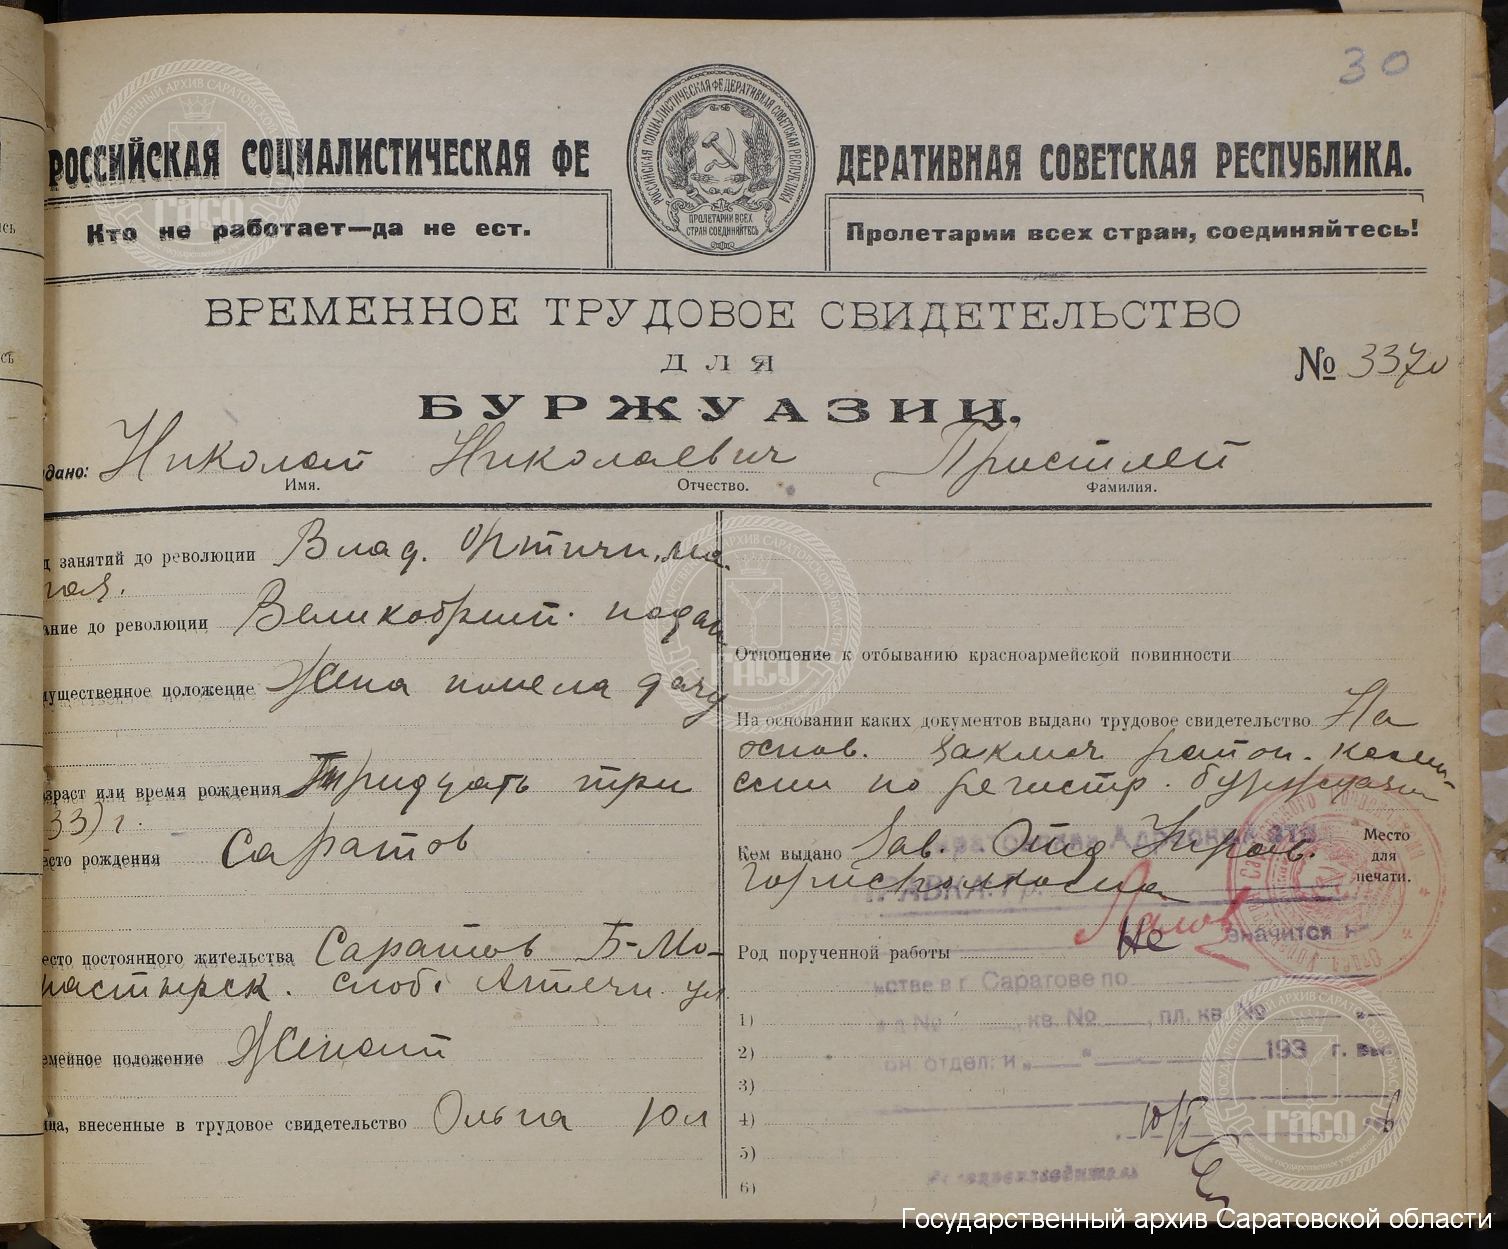 30
РОССИЙСКАЯ СОЦИАЛИСТИЧЕСКАЯ ФЕ ДЕРАТИВНАЯ СОВЕТСКАЯ РЕСПУБЛИКА.
РОССИЙСКАЯ СОЦИАЛИСТИЧЕСКАЯ ФЕДЕРАТИВНАЯ СОВЕТСКАЯ РЕСПУБЛИКА
ПРОЛЕТАРИИ ВСЕХ
СТРАН СОЕДИНЯЙТЕСЬ
Кто не работает—да не ест. Пролетарии всех стран, соединяйтесь!
ВРЕМЕННОЕ ТРУДОВОЕ СВИДЕТЕЛЬСТВО
ДЛЯ
№ 3370
БУРЖУАЗИИ.
дано: Николай Николаевич Пристлей
Имя. Отчество. Фамилия.
д занятий до революции Влад. Оптичи. ма
гая.
ание до революции Великобрит. подан
мущественное положение Жена имела дачу
озраст или время рождения Тридцать три
33) г.
есто рождения Саратов
есто постоянного жительства Саратов Б-Мо-
настырск. слоб. Аптечн. ул.
емейное положение Женат
ица, внесенные в трудовое свидетельство Ольга 10 л
Отношение к отбыванию красноармейской повинности
На основании каких документов выдано трудовое свидетельство На
основ. заключ. район. комис-
сии по регистр. буржуазии
Кем выдано Зав. Отд Управ.
горисполкома
Место
для
печати.
Род порученной работы
1)
2)
3)
4)
5)
6)
Саратовский Адресный
СПРАВКА. Гр.
Не значится
ьстве в г. Саратове по
д № , кв. № , пл. кв. №
он. отдел: и „ “ 193 г. выс
ГАСО
Государственный архив Саратовской области